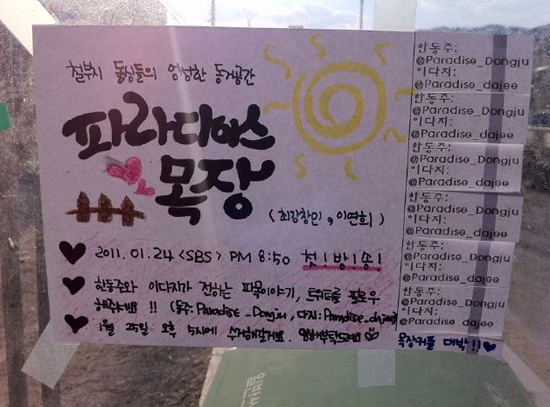 철부지 돌싱들의 엉성한 동거공간
파라다이스
목장
(최강창민, 이연희)
2011.01.24 <SBS> PM 8:50 첫!방!송!
한동주와 이다지가 전하는 파목이야기, 트위터를 팔로우
해주세요!! (동주: Paradise_Dongju, 다지: Paradise_dajee)
1월 25일 오후 5시에 수거해갈게요.
한동주:
@Paradise_Dongju
이다지:
@Paradise_dajee
한동주:
@Paradise_Dongju
이다지:
@Paradise_dajee
한동주:
@Paradise_Dongju
이다지:
@Paradise_dajee
한동주:
@Paradise_Dongju
이다지:
@Paradise_dajee
한동주:
@Paradise_Dongju
이다지:
@Paradise_dajee
한동주:
@Paradise_Dongju
이다지:
@Paradise_dajee
목장커플 대박!!